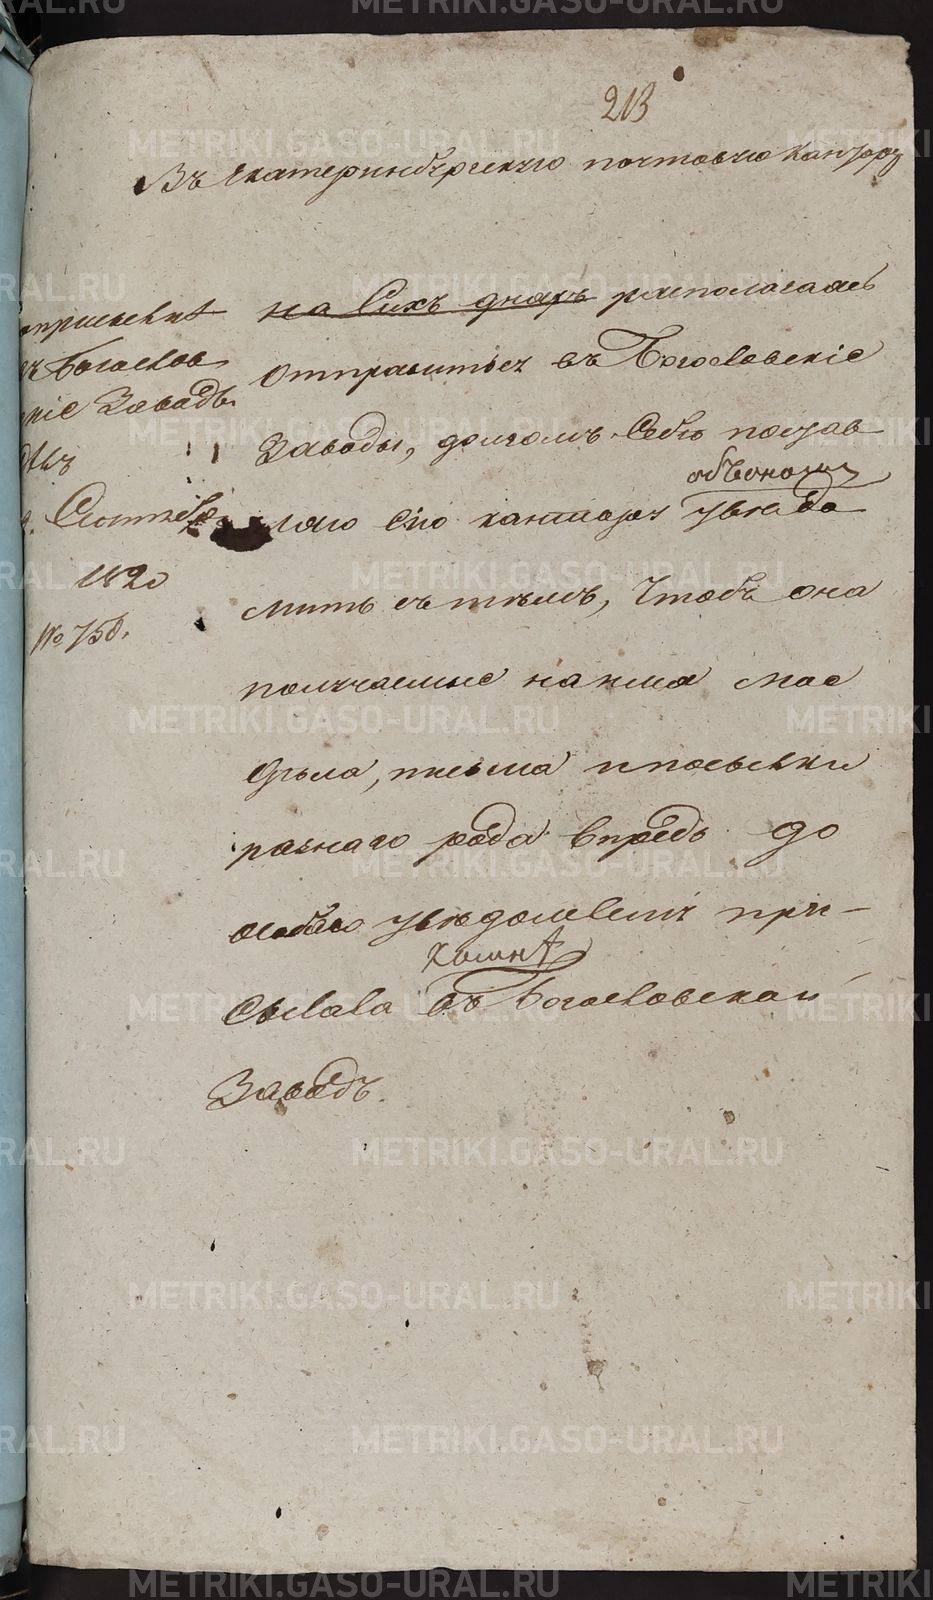 213
Въ Екатеринбургскую почтовую Контору
о присылкѣ
въ Богослов
скіе Заводы
Сентября
1820
№ 758.
на Сихъ дняхъ располагаясь
отправиться въ Богословскіе
Заводы, долгомъ Себѣ постав
объ ономъ
ляю Сію кантору увѣдо
мить съ тѣмъ, Чтобъ она
получаемые на имя мое
дѣла, письма и посылки
разнаго рода впредь до
особаго увѣдомленія при-
ко мнѣ
сылала въ Богословской
Заводъ.
METRIKI.GASO-URAL.RU